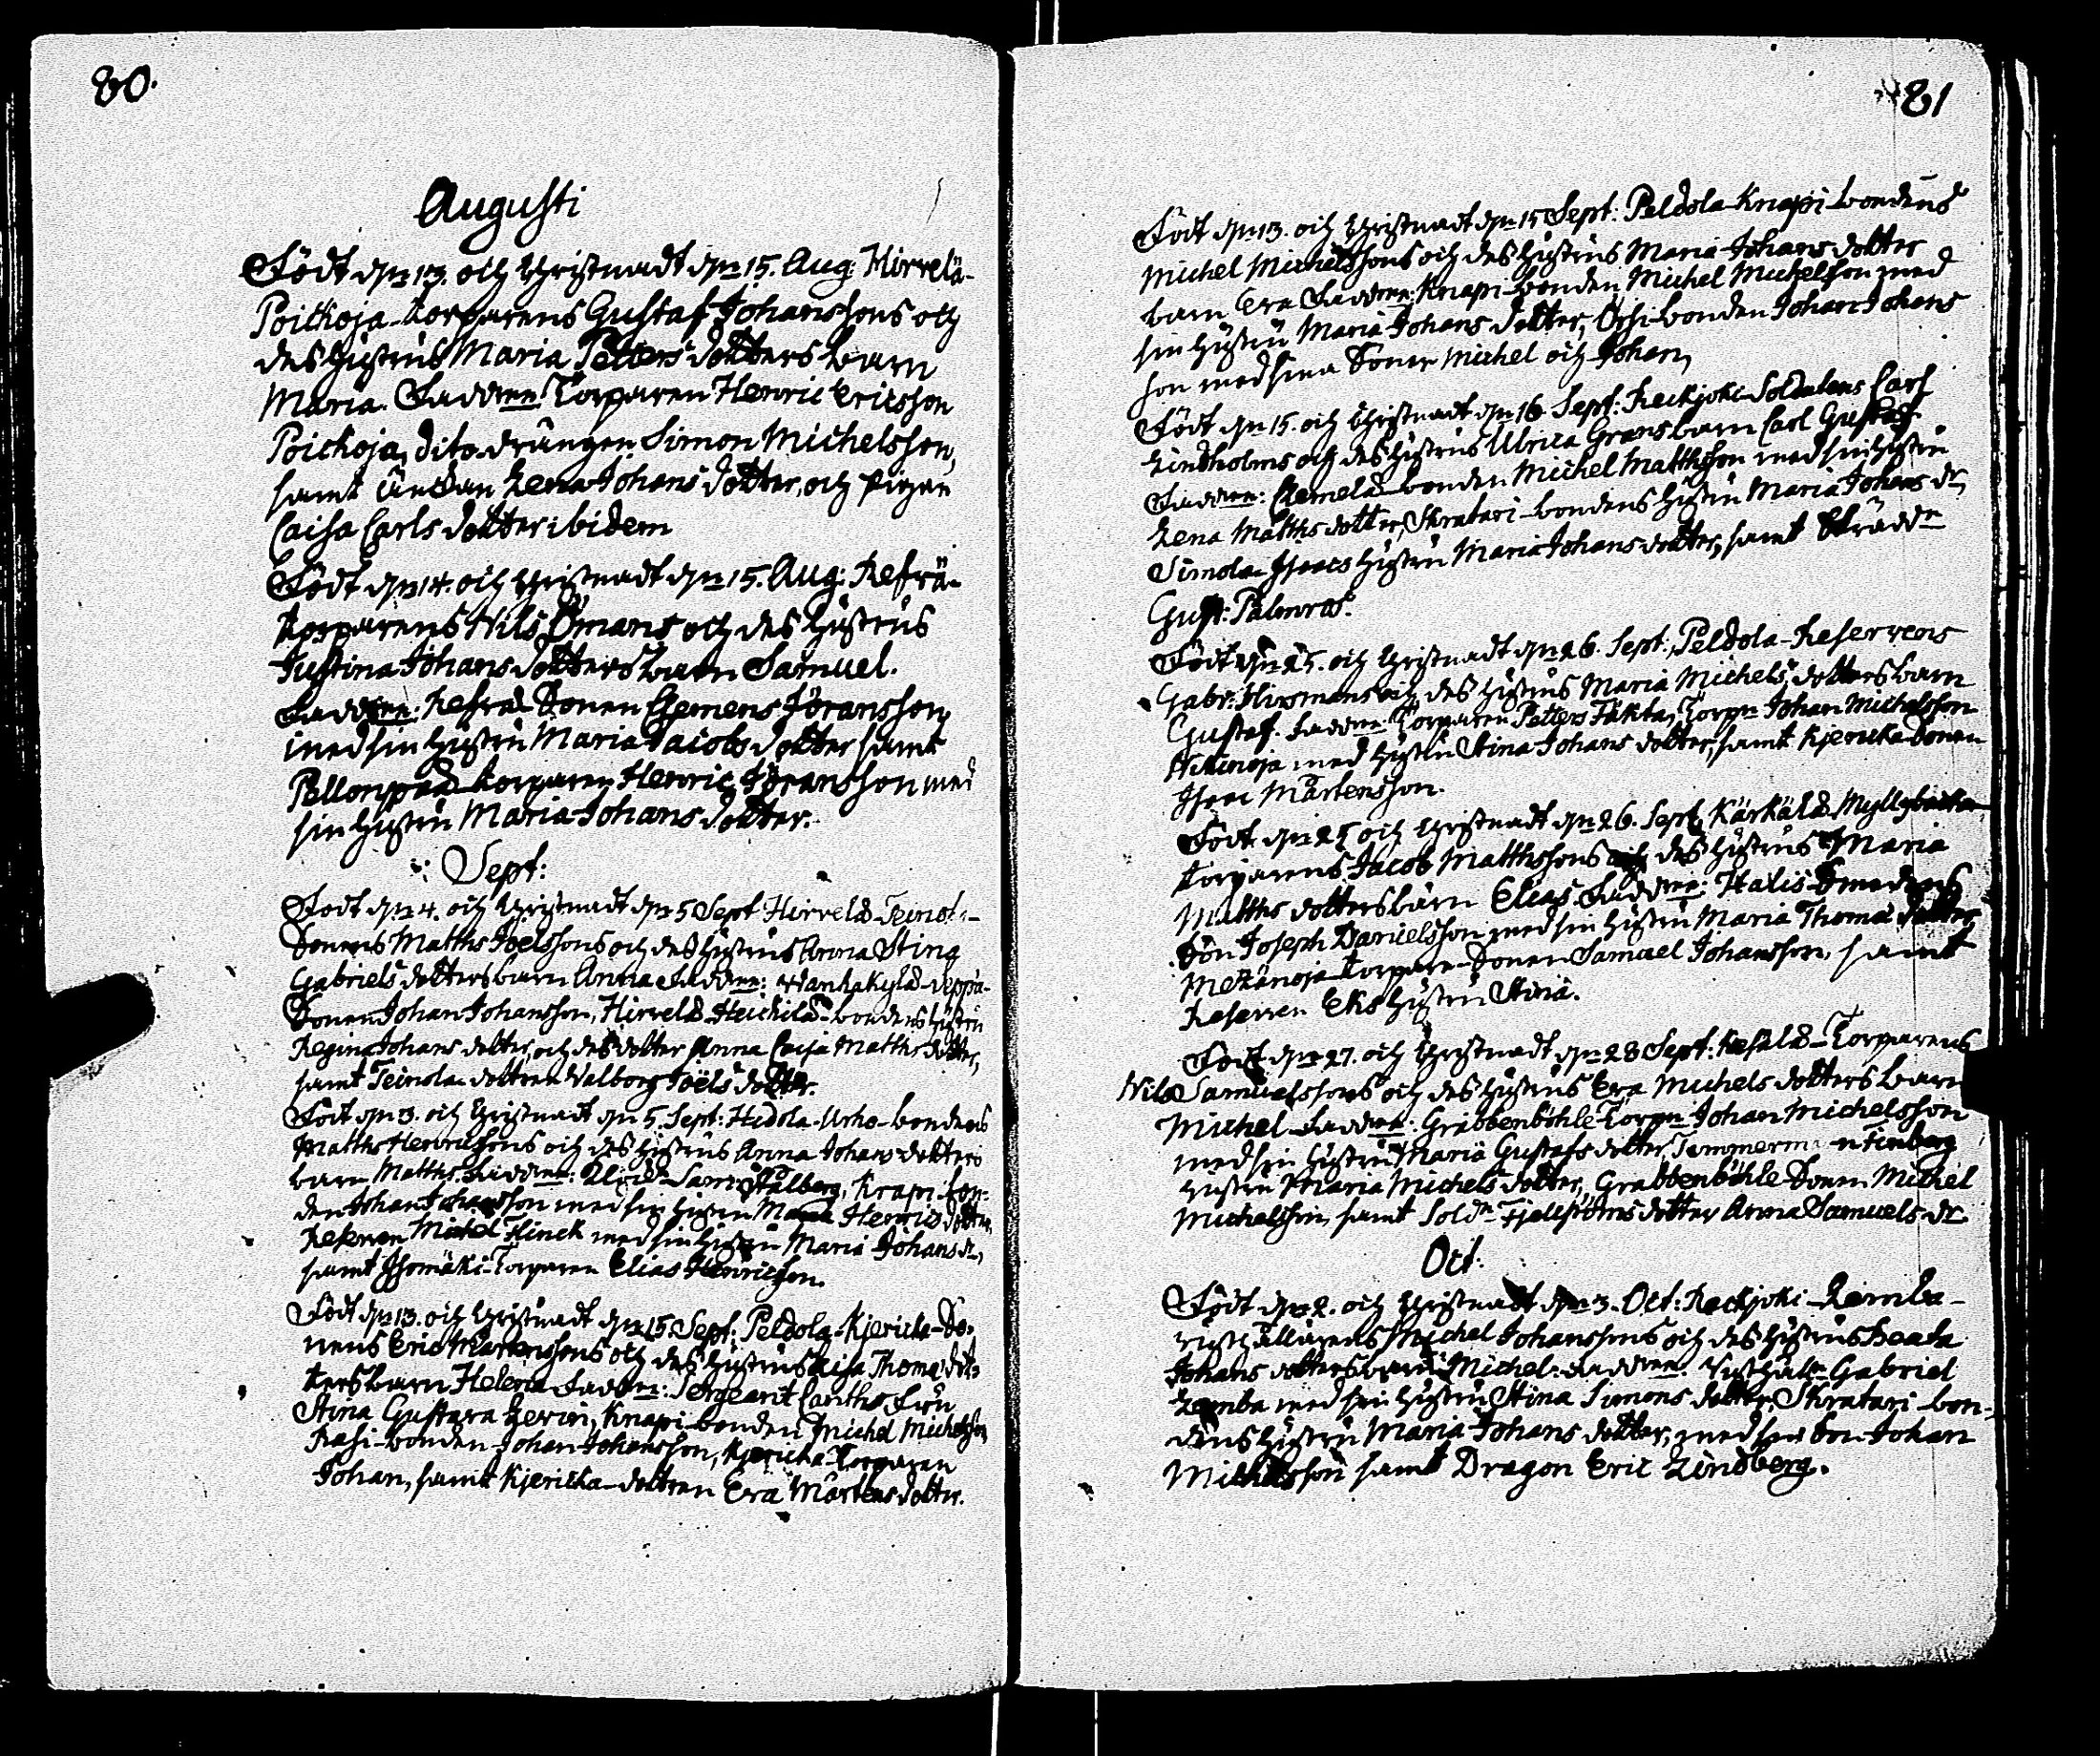 80.
Augusti
Födt d. 13. och Christnadt d. 15. Aug: Hirvelä-
Poickoja-torparens Gustaf Johanssons och
des hustrus Maria Petters dotters barn
Maria. Faddren: Torparen Henric Ericsson
Poickoja, dito drängen Simon Michelsson,
samt änckan Lena Johans dotter, och pigan
Caisa Carls dotter ibidem
Födt d. 14. och Christnadt d. 15. Aug: Kefrä-
torparens Nils Ömans och des hustrus
Justina Johans dotters barn Samuel.
Faddren: Kefrä Sonen Clemens Jöransson
med sin hustru Maria Jacobs dotter samt
torparen Henric Jöransson med
sin hustru Maria Johans dotter.
Sept:
Födt d. 4. och Christnadt d. 5 Sept Hirvelä-Teinola-
Sonens Matths Joelssons och des hustrus Anna Stina
Gabriels dotters barn Anna Faddren: Wanhakylä-Seppä-
Sonen Johan Johansson, Hirvelä Heickilä-bondens hustru
Regina Johans dotter, och des dotter Anna Caisa Matths dotter,
samt Teinola-dottren Valborg Joëls dotter.
Födt d. 3. och Christnadt d. 5. Sept: Hidola-Urho-bondens
Matths Henricssons och des hustrus Anna Johans dotters
barn Matths. Faddren: Stålberg, Knapi-bon-
den Johan Johansson med sin hustru Maria Henrics dotter,
Reserven Michel Flinck med sin hustru Maria Johans dr,
samt Isomäki-Torparen Elias Henricsson.
Födt d. 13. och Christnadt d. 15. Sept: Peldola-Kjericka-So-
nens Eric Mårtenssons och des hustrus Caisa Thomæ dot-
ters barn Helena Faddren: Sergeant Fru
Stina Gustava Levin, Knapi-bonden Michel Michelsson
Rasi-bonden Johan Johansson, Kjericka-Torparen
Johan, samt Kjericka-dottren Eva Mårtens dotter.
81
Födt d. 13. och Christnadt d. 15 Sept: Peldola-Knapi-bondens
Michel Michelssons och des hustrus Maria Johans dotters
barn Eva Faddren: Knapi-bonden Michel Michelsson med
sin hustru Maria Johans dotter, bonden Johan Johans
son med sina Söner Michel och Johan,
Födt d. 15. och Christnadt d. 16 Sept: Reckjoki-Soldatens Carl
Lindholms och des hustrus Ulrica Grans barn Carl Gustaf
Faddren: bonden Michel Matthsson med sin hustru
Lena Matths dotter, Skratari-bondens hustru Maria Johans dr,
Simola-Isaacs hustru Maria Johans dotter, samt
Gust: Palmros.
Födt d. 25. och Christnadt d. 26. Sept: Peldola-Reservens
Gabr: Hirsmans och des hustrus Maria Michels dotters barn
Gustaf. Faddren: Torparen Petter Torpn Johan Michelsson
med hustru Stina Johans dotter, samt Kjericka-Sonen
Isaac Mårtensson.
Födt d. 25 och Christnadt d. 26. Sept: Kärkälä Myllybacka-
torparens Jacob Matthssons och des hustrus Maria
Matths dotters barn Elias. Faddren: Smedens
Son Joseph Danielsson med sin hustru Maria Thomæ dotter
torpare-Sonen Samuel Johansson, samt
Reserven Eks hustru Stina.
Födt d. 27. och Christnadt d. 28 Sept: Torparens
Nils Samuelssons och des hustrus Eva Michels dotters barn
Michel. Faddren: Grabbenböhle-Torpn Johan Michelsson
med sin hustru Maria Gustafs dotter,
hustru Maria Michels dotter, Grabbenböhle-Sonen Michel
Michelsson samt Soldn Fjelströms dotter Anna Samuels dr
Oct:
Födt d. 2. och Christnadt d. 3. Oct: Reckjoki-Lemba-
rusthållarens Michel Johanssons och des hustrus Beata
Johans dotters barn Michel. Faddren: Rusthålln Gabriel
Lemba med sin hustru Stina Simons dotter, Skratari-bon-
dens hustru Maria Johans dotter, med sin Son Johan
Michelsson samt Dragon Eric Lindberg.